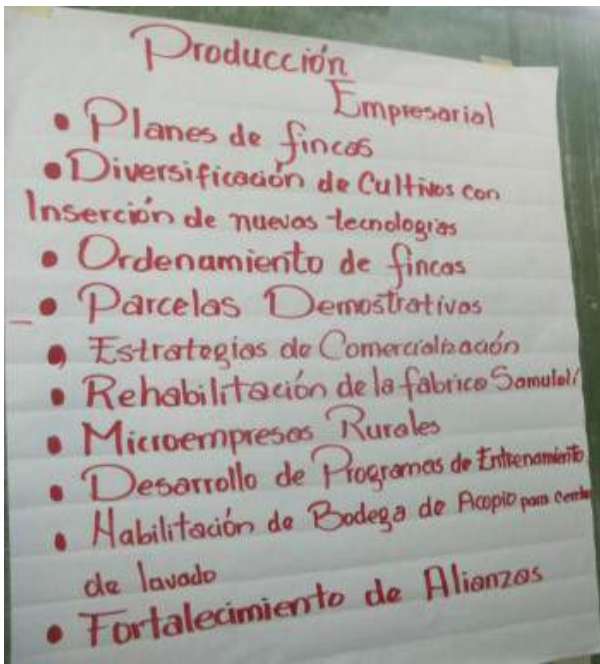 Producción
Empresarial
• Planes de fincas
• Diversificación de Cultivos con
Inserción de nuevas tecnologías
• Ordenamiento de fincas
• Parcelas Demostrativas
• Estrategias de Comercialización
• Rehabilitación de la fabrica Samulalí
• Microempresas Rurales
• Desarrollo de Programas de Entrenamiento
• Habilitación de Bodega de Acopio para
de lavado
• Fortalecimiento de Alianzas